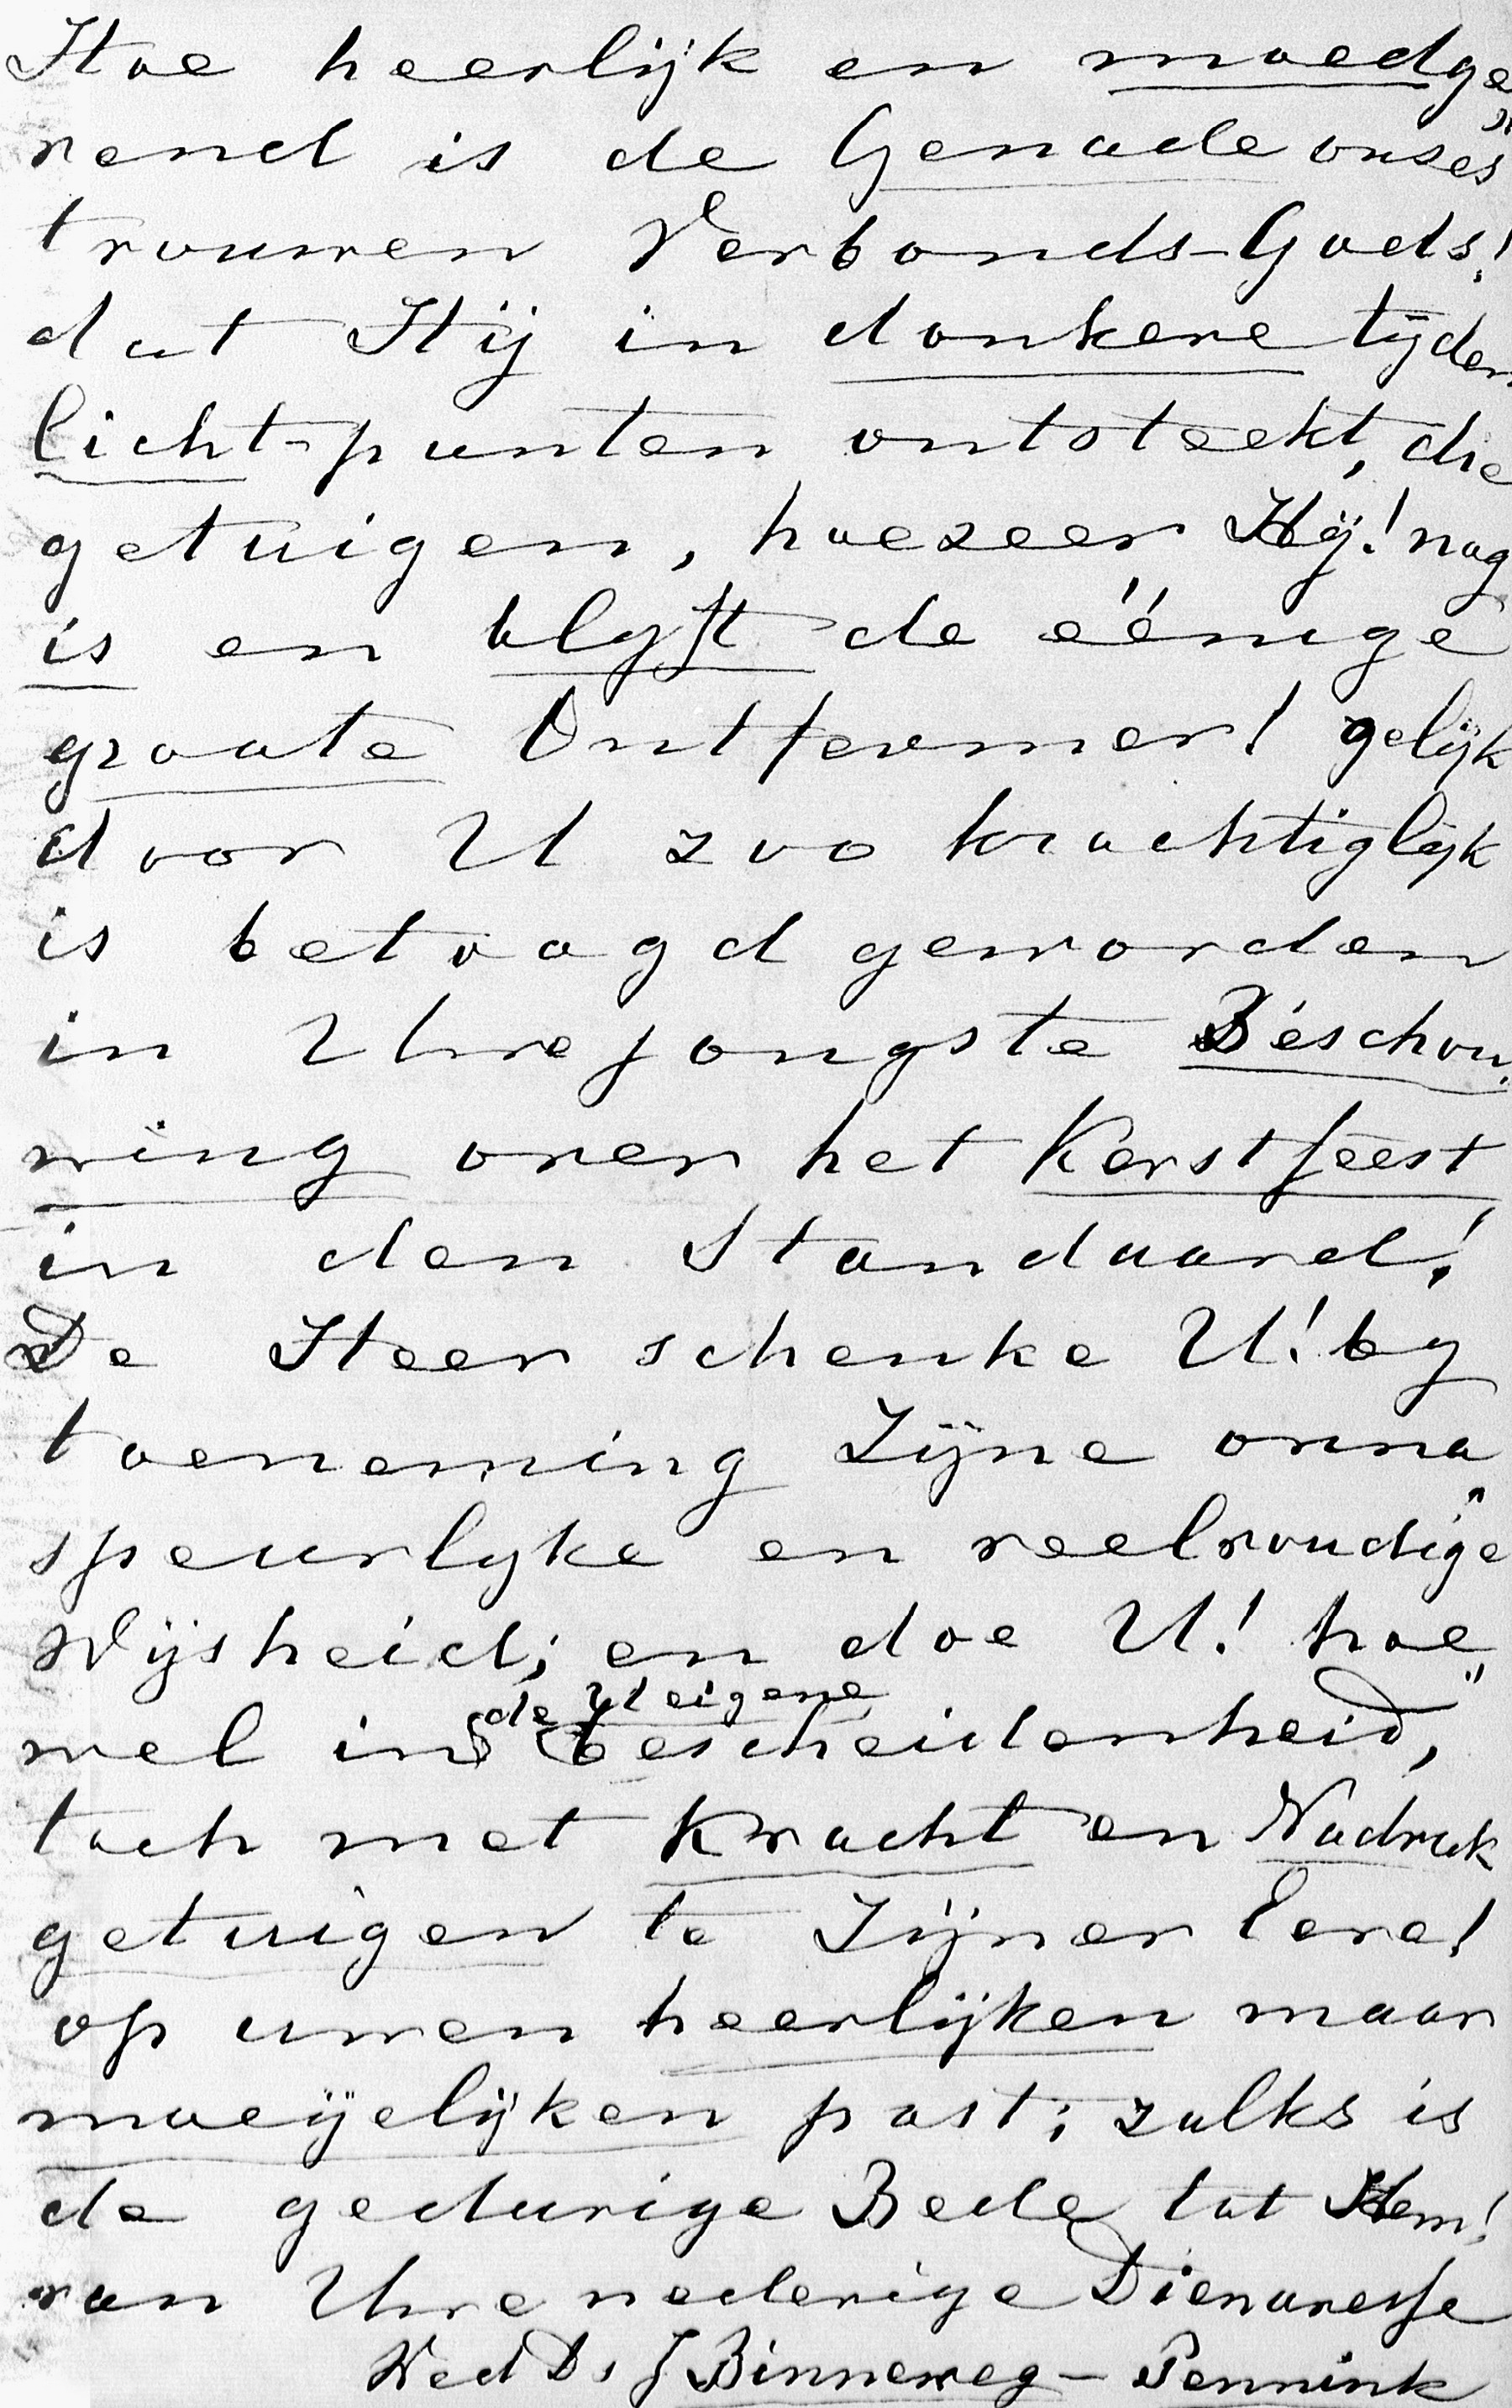 Hoe heerlijk en moedge„
vend is de Genade onses
trouwen Verbonds-Gods!
dat Hij in donkere tijden
licht-punten ontsteekt, die
getuigen, hoezeer Hij! nog
is en blyft de éénige
groote Ontfermer! gelijk
door U zoo krachtiglijk
is betoogd geworden
in Uwe jongste Beschou„
wing over het Kerstfeest
in den Standaard!
De Heer schenke U! by
toeneming Zijne onna„
speurlyke en veelvoudige
Wijsheid; en doe U! hoe„
wel in de U eigene bescheidenheid,
toch met kracht en Nadruk
getuigen te Zijner Eere!
op uwen heerlijken maar
moeÿelijken post; zulks is
de gedurige Bede tot Hem!
van Uwe nederige Dienaresse
Wed Ds J Binneweg - Pennink